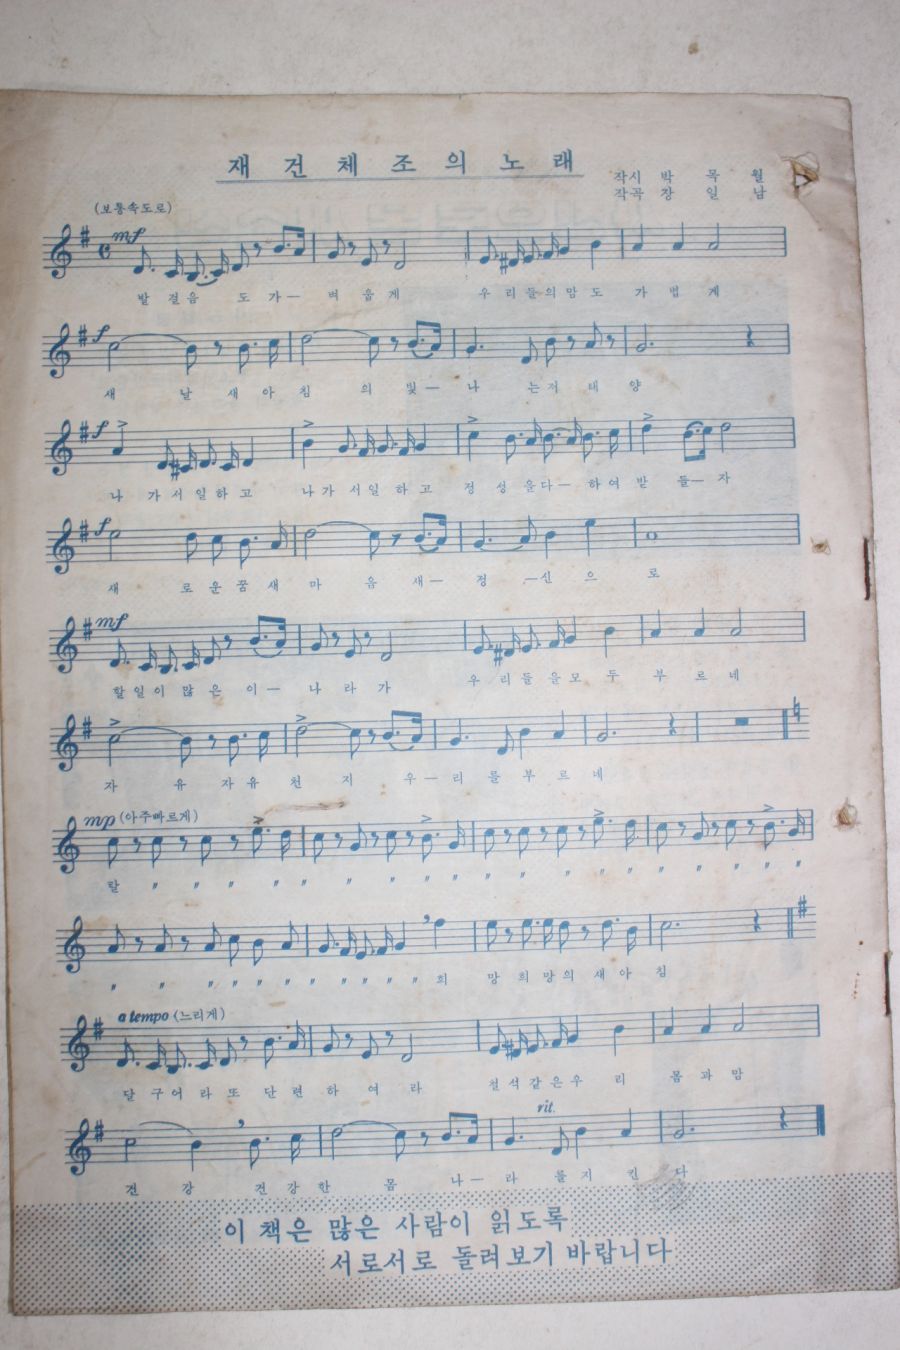 재 건 체 조 의 노 래
작시 박 목 월
작곡 장 일 남
(보통속도로)
mf
발 걸 음 도 가— 벼 웁 게 우 리 들 의 맘 도 가 볍 게
f
새 날 새 아 침 의 빛— 나 는 저 태 양
f
나 가 서 일 하 고 나 가 서 일 하 고 정 성 을 다— 하 여 받 들— 자
f
새 로 운 꿈 새 마 음 새— 정 —신 으 로
mf
할 일 이 많 은 이— 나 라 가 우 리 들 을 모 두 부 르 네
자 유 자 유 천 지 우— 리 를 부 르 네
mp (아주빠르게)
랄 〃 〃 〃 〃 〃 〃 〃 〃 〃 〃 〃 〃 〃 〃 〃 〃 〃 〃 〃
〃 〃 〃 〃 〃 〃 〃 〃 〃 〃 〃 희 망 희 망 의 새 아 침
a tempo (느리게)
달 구 어 라 또 단 련 하 여 라 철 석 같 은 우 리 몸 과 맘
rit.
건 강 건 강 한 몸 나— 라 를 지 킨 다
이 책은 많은 사람이 읽도록
서로서로 돌려보기 바랍니다